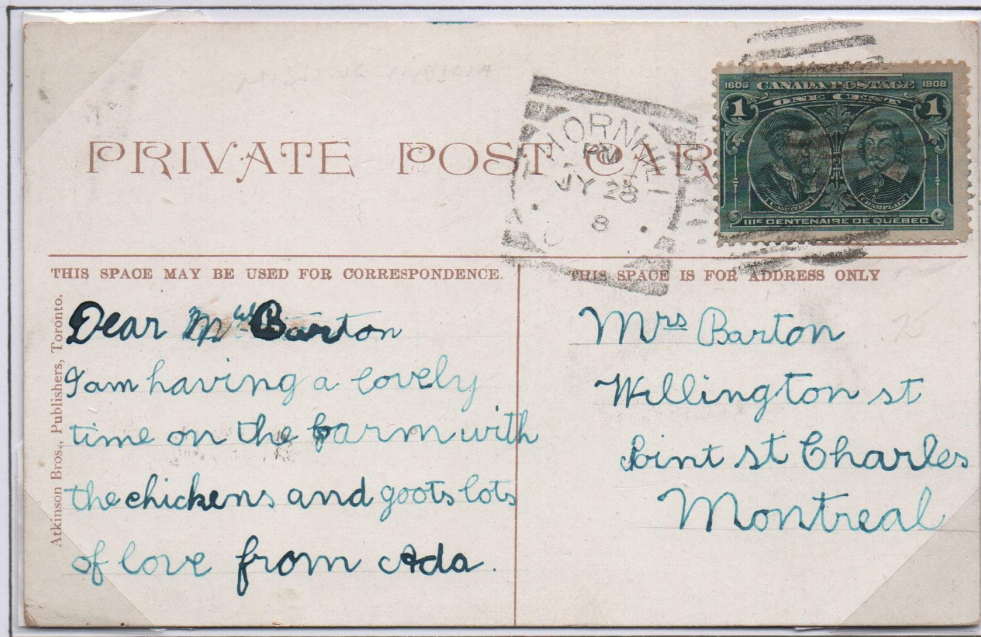 1608 CANADA POSTAGE 1908
1 ONE CENT 1
CARTIER CHAMPLAIN
IIIE CENTENAIRE DE QUÉBEC
PRIVATE POST CAR
PM
JY 28
8
THIS SPACE MAY BE USED FOR CORRESPONDENCE.
THIS SPACE IS FOR ADDRESS ONLY
Atkinson Bros., Publishers, Toronto.
Dear Mrs Barton
I am having a lovely
time on the farm with
the chickens and goots lots
of love from Ada.
Mrs Barton
Wellington st
Point st Charles
Montreal